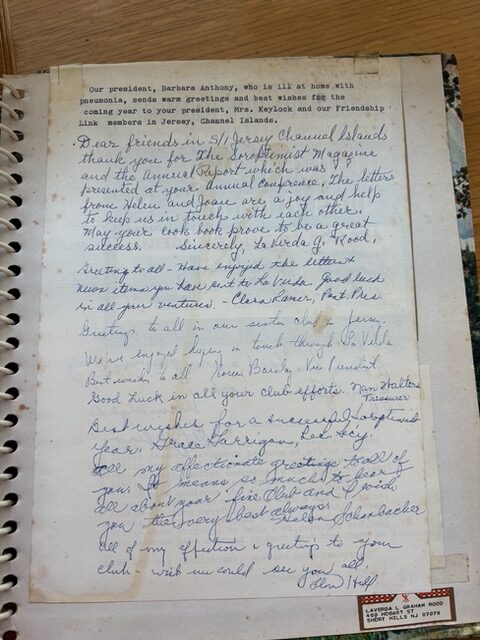 Our president, Barbara Anthony, who is ill at home with
pneumonia, sends warm greetings and best wishes for the
coming year to your president, Mrs. Keylock and our Friendship
Link members in Jersey, Channel Islands.
Dear friends in S/I Jersey Channel Islands
thank you for The Soroptimist Magazine
and the Annual Report which was
presented at your Annual Conference. The letters
from Helen and Joan are a joy and help
to keep us in touch with each other.
May your cook book prove to be a great
success. Sincerely, LaVerda G. Rood,
Greeting to all - Have enjoyed the letters &
news items you have sent to La Verda Good luck
in all your ventures. - Clara Past Pres.
Greetings to all in our sister club in Jersey.
We've enjoyed keeping in touch through La Verda
Best wishes to all Vice President
Good Luck in all your club efforts. Nan Walters
Treasurer
Best wishes for a successful Soroptimist
year. Grace Garrigan, Rec. Sc'y.
All my affectionate greetings to all of
you. It means so much to hear
all about your fine Club and I wish
you the very best always!
Helen
All of my affection & greetings to your
club - wish we could see you all.
LAVERDA L. GRAHAM ROOD
400 HOBART ST
SHORT HILLS NJ 07078